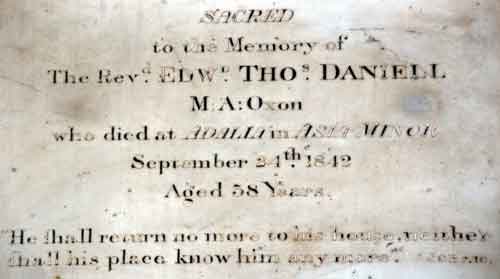 SACRED
to the Memory of
The Revd. EDWD. THOS. DANIELL
M.A: Oxon
who died at ADALIA in ASIA MINOR
September 24th. 1842
Aged 38 Years.
"He shall return no more to his house, neither
shall his place know him any more."